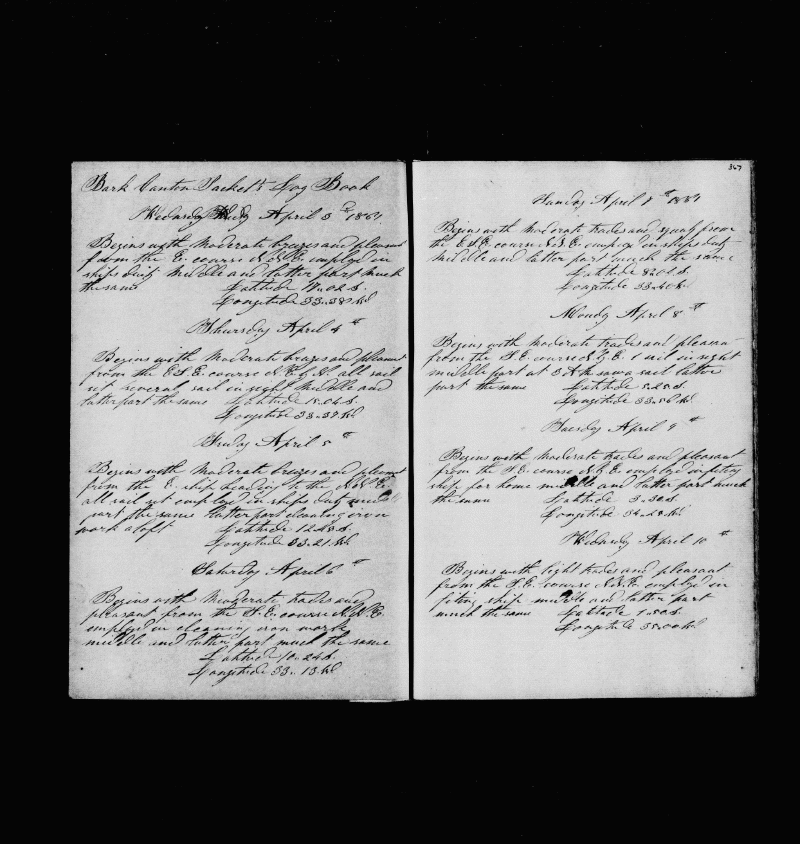 Bark Canton Packet's Log Book
Wedensday April 3 1861
Begins with Moderate brezes and pleasant
from the E. course N.N.E. employed in
ships duty Middle and latter part much
the same Latitude 17..02 S.
Longitude 33..38 W
Thursday April 4th
Begins with Moderate brezes and pleasant
from the ESE. course N.E. all sail
set several sail in sight Middle and
latter part the same Latitude 15..04 S.
Longitude 33..39 W
Friday April 5th
Begins with Moderate brezes and pleasant
from the E. ship heading to the N.N.E.
all sail set employed in ships duty middle
part the same latter part cleaning iron
work aloft Latitude 12..48 S.
Longitude 33..21 W
Saturday April 6th
Begins with Moderate trades and
pleasant from the S.E. course N.N.E.
employed in cleaning iron work
middle and latter part much the same
Latitude 10..24 S.
Longitude 33..13 W
367
Sunday April 7th 1861
Begins with Moderate trades and squaly from
the ESE course N.N.E. employ in ships duty
Middle and latter part much the same
Latitude 8..02 S.
Longitude 33..40 W
Monday April 8th
Begins with Moderate trades and pleasant
from the S.E. course N.N.E. 1 sail in sight
middle part at 3 A.M. saw a sail latter
part the same Latitude 5..25 S.
Longitude 33..56 W
Tuesday April 9th
Begins with Moderate trades and pleasant
from the S.E. course N.N.E. employed in fiting
ship for home middle and latter part much
the same Latitude 3..30 S.
Longitude 34..28 W
Wedensdy April 10th
Begins with light trades and pleasant
from the S.E. course N.N.E. employed in
fiting ship middle and latter part
much the same Latitude 1..50 S.
Longitude 35..00 W